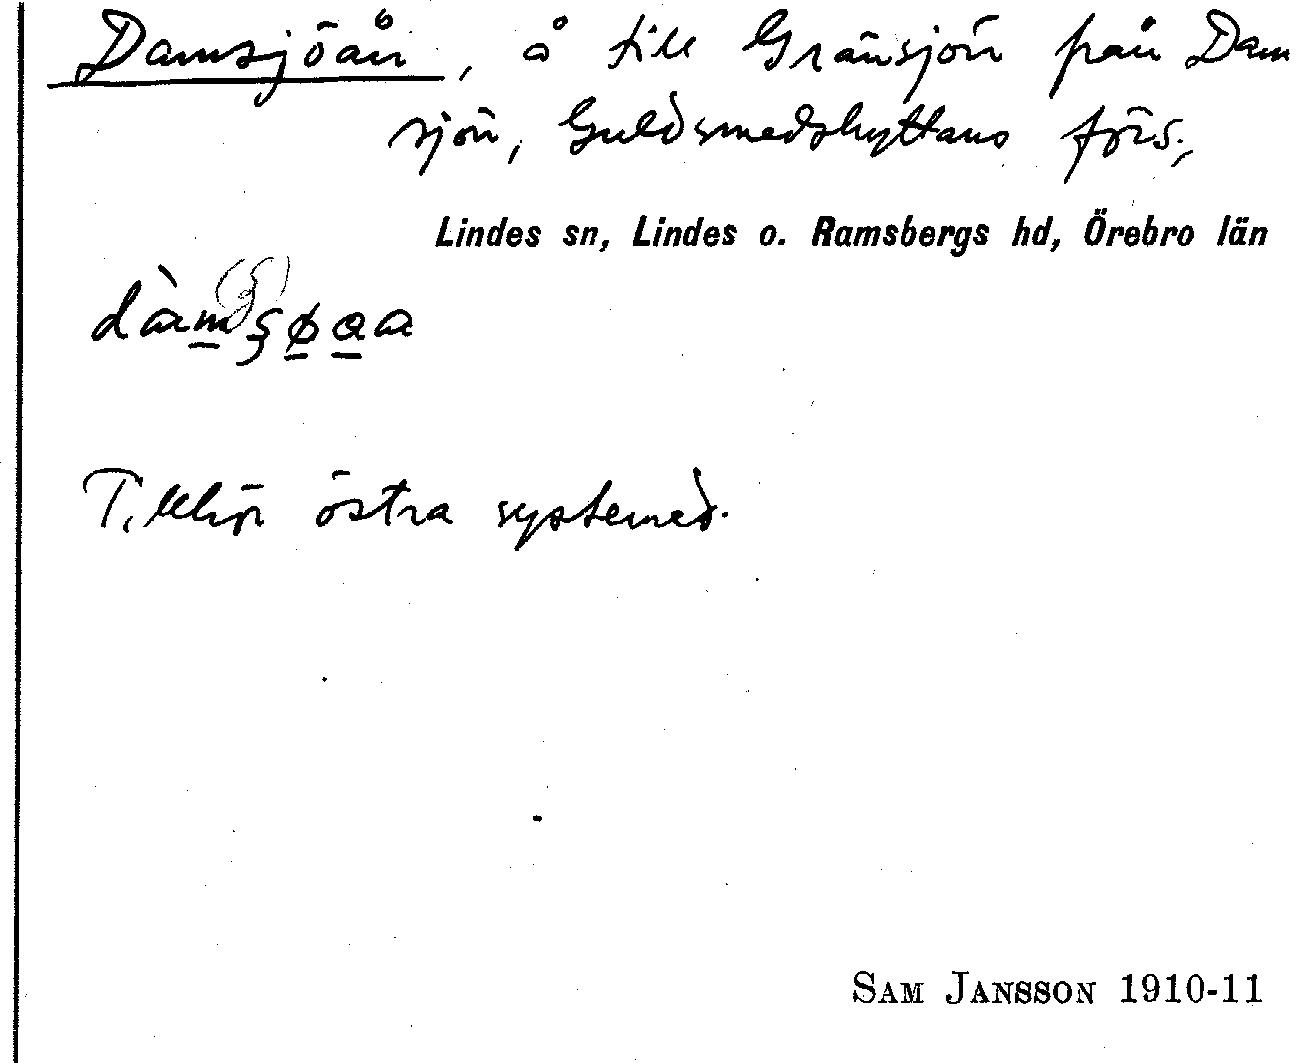 Damsjöån, å till Gränsjön från Dam
sjön, Guldsmedshyttans förs.,
Lindes sn, Lindes o. Ramsbergs hd, Örebro län
Tillhör östra systemed.
SAM JANSSON 1910-11